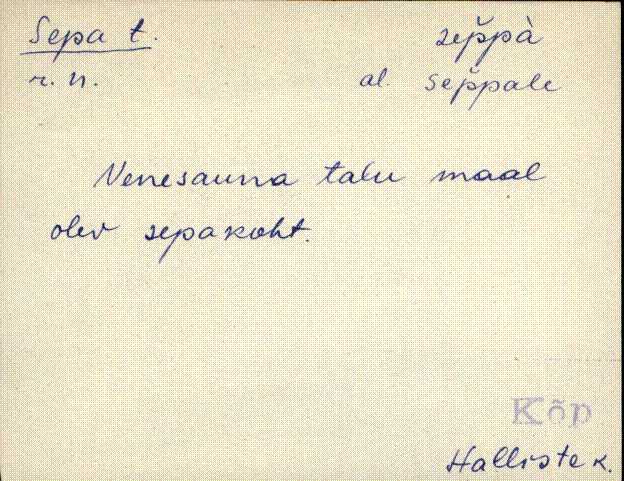 Sepa t. sep̆pà
r. n. al. sep̆pale
Venesauna talu maal
olev sepakoht.
Kõp
Halliste k.